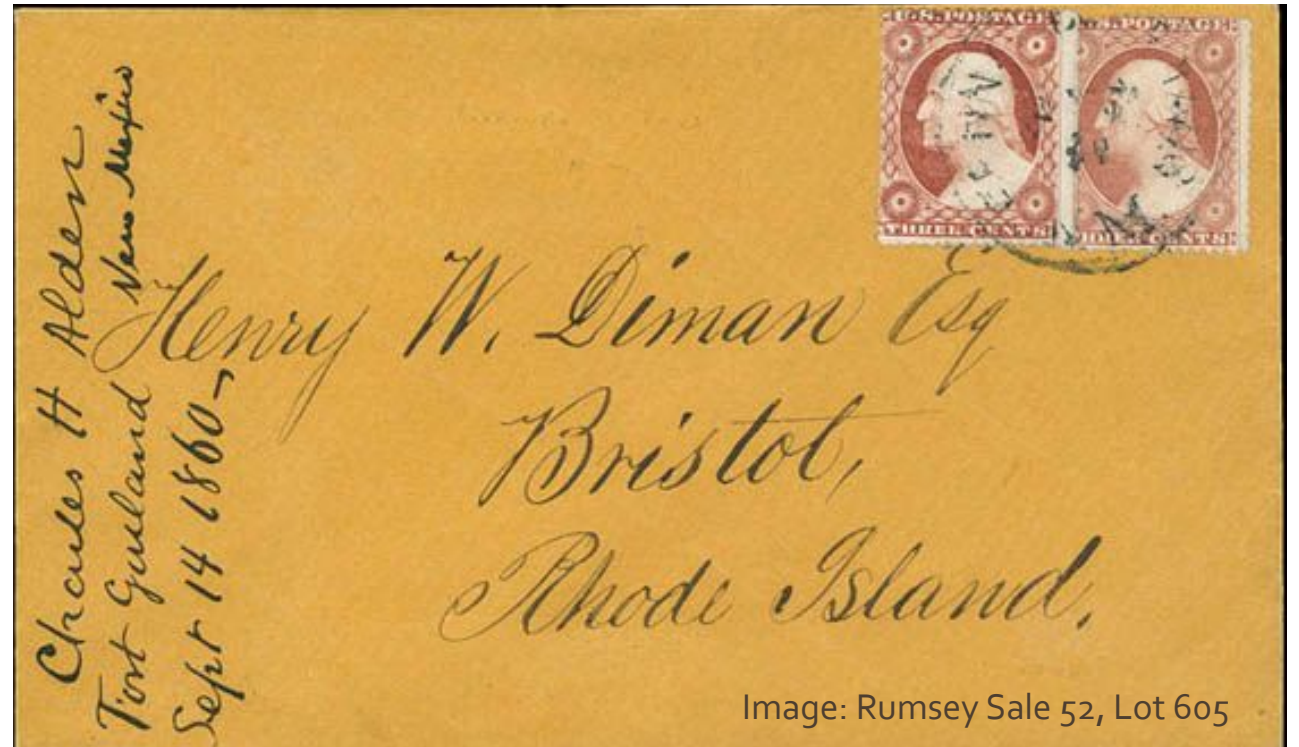 U.S. POSTAGE
U.S. POSTAGE
THREE CENTS
THREE CENTS
Charles H Alden
Fort Garland New Mexico
Sept 14 1860
Henry W. Diman Esq
Bristol,
Rhode Island.
Image: Rumsey Sale 52, Lot 605